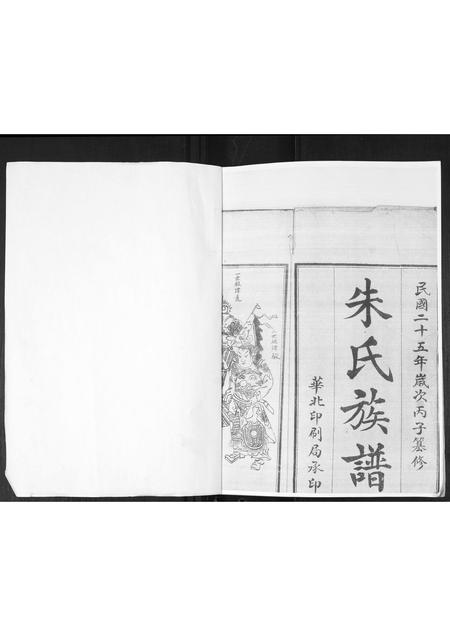 民國二十五年歲次丙子篡修
朱氏族譜
華北印刷局承印